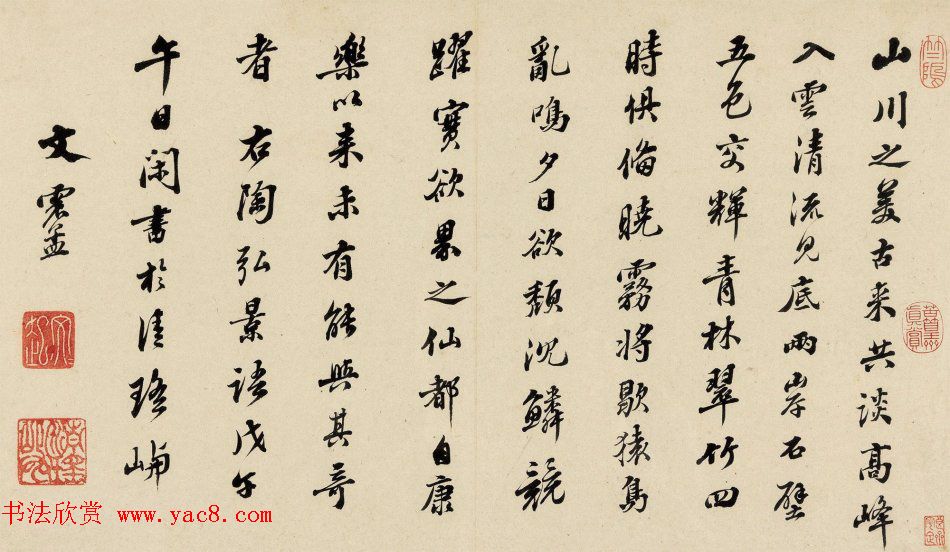 山川之美古来共談高峰
入雲清流見底兩岸石壁
五色交輝青林翠竹四
時俱備曉霧將歇猿鳥
亂鳴夕日欲頹沉鱗競
躍實欲界之仙都自康
樂以来未有能與其奇
者 右陶弘景語戊午
午日閑書於清瑤嶼
文震孟
书法欣赏 www.yac8.com